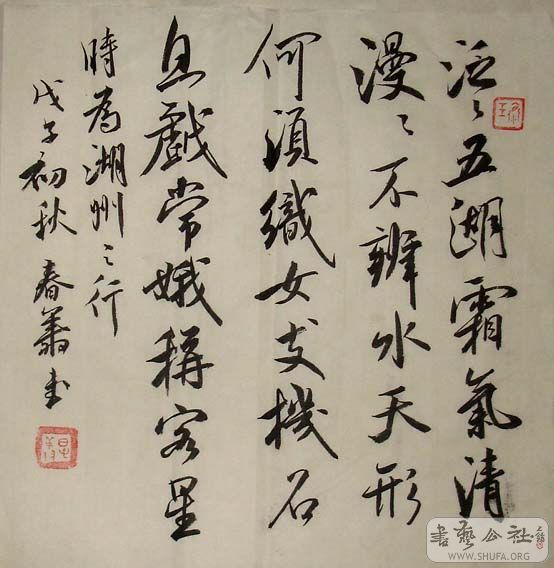 泛〻五湖霜氣清
漫〻不辨水天形
何須織女支機石
且戲常娥稱客星
時為湖州之行
戊子初秋 春蕭书
書藝公社
WWW.SHUFA.ORG